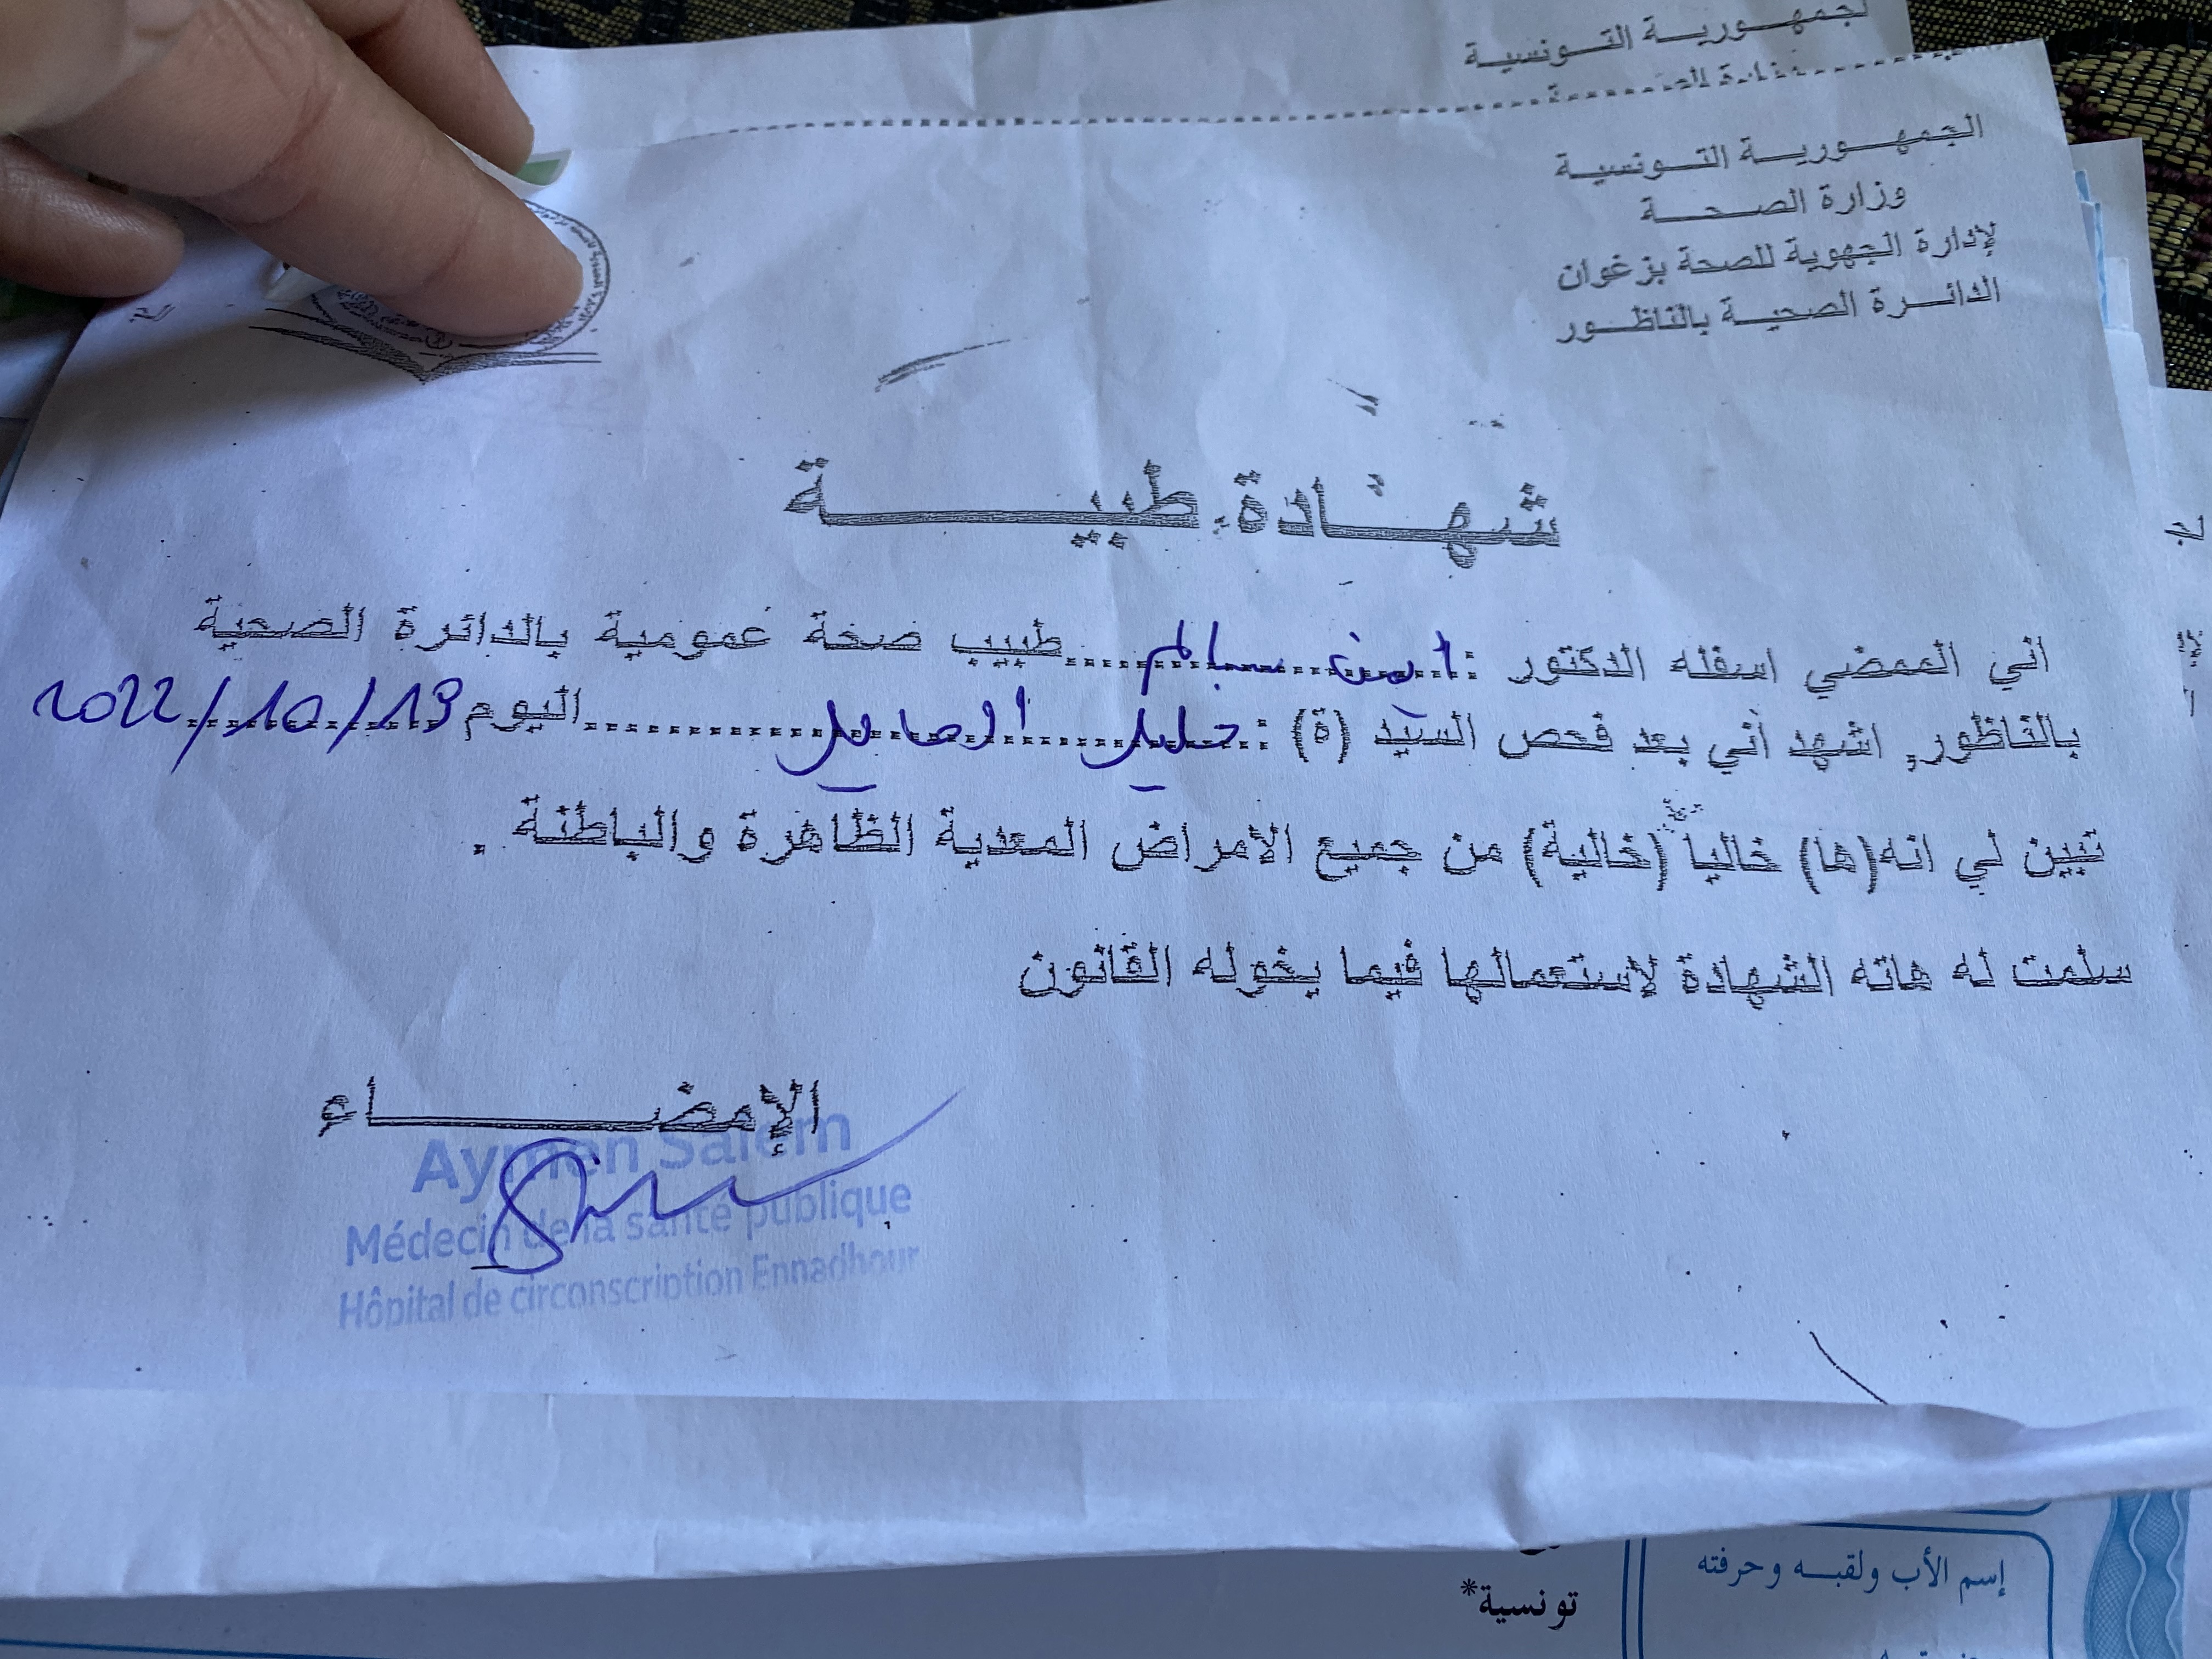 الجمهورية التونسية
الجمهورية التونسية
وزارة الصحة
لإدارة الجهوية للصحة بزغوان
الدائرة الصحية بالناظور
شهادة طبية
اني الممضي اسفله الدكتور : ايمن سالم طبيب صحة عمومية بالدائرة الصحية
بالناظور, اشهد أني بعد فحص السيد (ة) : خليل اليوم 13/10/2022
تبين لي انه(ها) خاليا (خالية) من جميع الامراض المعدية الظاهرة والباطنة .
سلمت له هاته الشهادة لاستعمالها فيما يخوله القانون
الإمضاء
Aymen Salem
Médecin de la santé publique
Hôpital de circonscription Ennadhour
إسم الأب ولقبه وحرفته
تونسية*